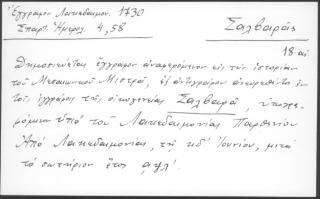 Ἔγγραφον Λακεδαίμον. 1730
Σπαρτ. Ἡμερολ. 4, 58
Σαλβαρᾶς
18 αἰ.
Δημοσιεύεται ἔγγραφον ἀναφερόμενον εἰς τὴν ἱστορίαν
τοῦ Μεσαιωνικοῦ Μιστρᾶ, ἐξ ἀντιγράφου ἀνευρεθέντος ἐν
τοῖς ἐγγράφοις τῆς οἰκογενείας Σαλβαρᾶ, ὑπογε-
γραμμένον ὑπὸ τοῦ Λακεδαιμονίας Παρθενίου
Ἀπὸ Λακεδαιμονίας, τῇ κδ' Ἰουνίου, μετὰ
τὸ σωτήριον ἔτος αψλ'.